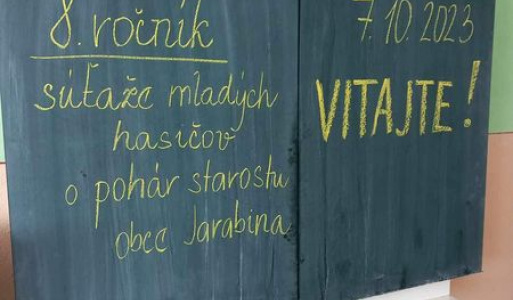 8. ročník
súťaže mladých
hasičov
o pohár starostu
obce Jarabina
7. 10. 2023
VITAJTE!